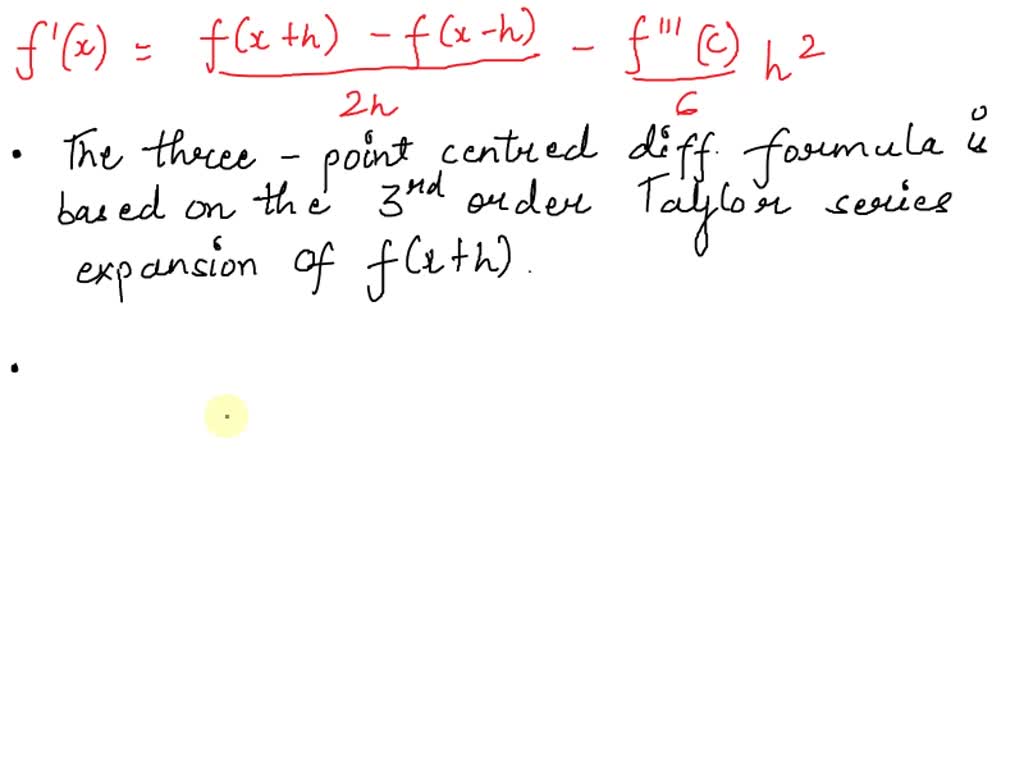 f'(x) = f(x+h) - f(x-h) / 2h - f'''(c) / 6 h²
• The three-point centred diff. formula is
based on the 3rd order Taylor series
expansion of f(x+h).
•